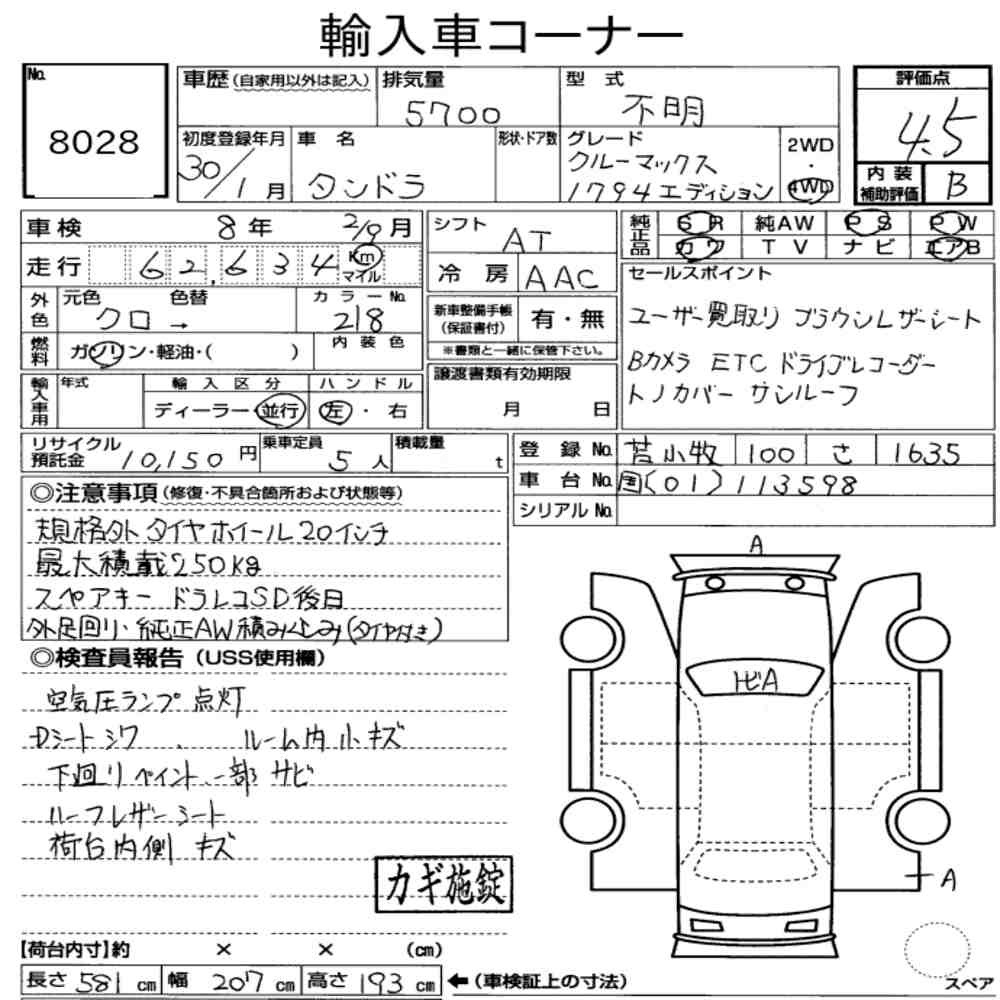 輸入車コーナー
No.
8028
車歴(自家用以外は記入) 排気量 型 式 評価点
5700 不明 4.5
初度登録年月 車 名 形状・ドア数 グレード 2WD・4WD
30/1月 タンドラ クルーマックス
1794エディション
内装補助評価 B
車検 8年 2/9月
走行 62,634 Km マイル
外色 元色 色替 カラーNo.
クロ → 218
燃料 ガソリン・軽油・( ) 内装色
輸入車用 年式 輸入区分 ハンドル
ディーラー・並行 左・右
シフト AT
冷房 AAC
新車整備手帳(保証書付) 有・無
※書類と一緒に保管下さい。
譲渡書類有効期限
月 日
純正品 SR 純AW PS PW
カワ TV ナビ エアB
セールスポイント
ユーザー買取り ブラウンレザーシート
Bカメラ ETC ドライブレコーダー
トノカバー サンルーフ
リサイクル預託金 10,150円 乗車定員 5人 積載量 t
登録No. 苫小牧 100 さ 1635
車台No. 国(01)113598
シリアルNo.
◎注意事項(修復・不具合箇所および状態等)
規格外タイヤホイール20インチ
最大積載250kg
スペアキー ドラレコSD後日
外足回り・純正AW積み込み(タイヤ付き)
◎検査員報告(USS使用欄)
空気圧ランプ点灯
Dシートシワ、 ルーム内小キズ
下廻りペイント、一部サビ
ルーフレザーシート
荷台内側キズ
カギ施錠
A
トビA
A
スペア
【荷台内寸】約 × × (cm)
長さ 581 cm 幅 207 cm 高さ 193 cm ←(車検証上の寸法)